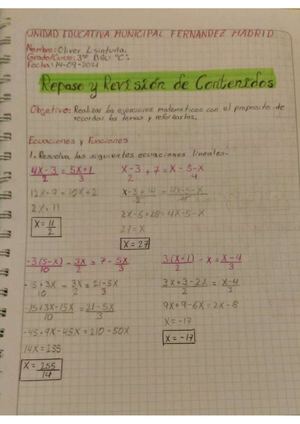 UNIDAD EDUCATIVA MUNICIPAL FERNANDEZ MADRID
Nombre: Oliver
Grado/Curso: 3ro BGU "C"
Fecha: 14-09-2021
Repaso y Revisión de Contenidos
Objetivo: Realizar los ejercicios matematicos con el proposito de
recordar los temas y reforzarlos.
Ecuaciones y Funciones
1. Resuelva las siguientes ecuaciones lineales.
4X-3/2 = 5X+1/3
12X-9 = 10X+2
2X = 11
X = 11/2
X-3/2 + 7 = X - 5-X/4
X-3+14/2 = 4X-5-X/4
27 = X
X = 27
-3(5-X)/10 - 3X/2 = 7 - 5X/3
-15+3X-15X/10 = 21-5X/3
-45+9X-45X = 210-50X
14X = 255
X = 255/14
3(X+1)/2 - X = X-4/3
3X+3-2X/2 = X-4/3
9X+9-6X = 2X-8
X = -17
X = -17